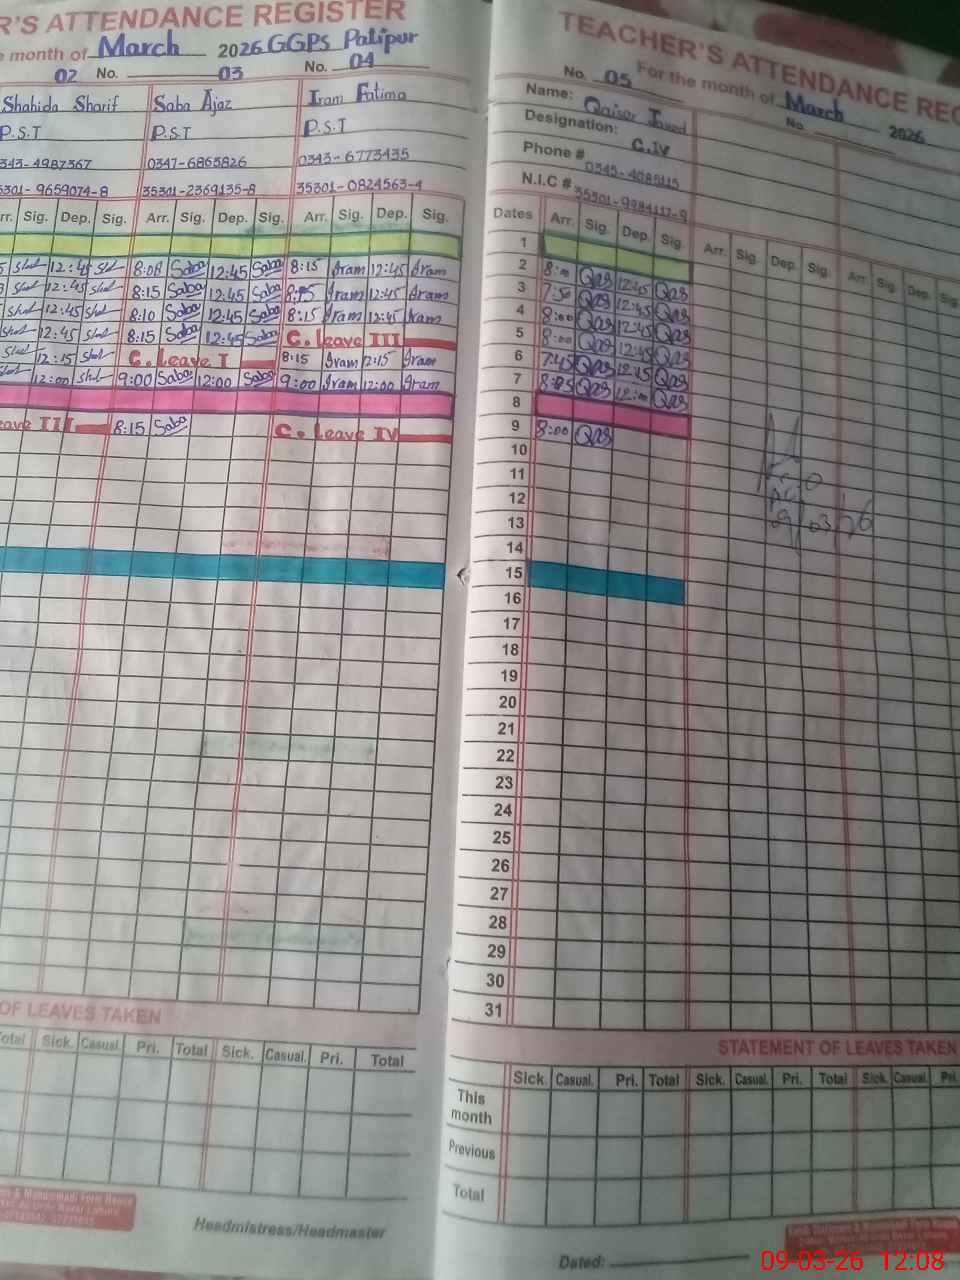 R'S ATTENDANCE REGISTER
month of March 2026 GGPS Palipur
02 No. 03 No. 04
Shahida Sharif Saba Ajaz Iram Fatima
P.S.T P.S.T P.S.T
343-4987367 0347-6865826 0343-6773435
5301-9659074-8 35301-2369135-8 35301-0824563-4
Sig. Dep. Sig. Arr. Sig. Dep. Sig. Arr. Sig. Dep. Sig.
12:45 8:08 Saba 12:45 Saba 8:15 Iram 12:45 Iram
12:45 8:15 Saba 12:45 Saba Iram 12:45 Iram
12:45 8:10 Saba 12:45 Saba 8:15 Iram 12:45 Iram
12:45 8:15 Saba 12:45 Saba C. Leave III
12:15 C. Leave I 8:15 Iram 12:15 Iram
12:00 9:00 Saba 12:00 Saba 9:00 Iram 12:00 Iram
eave III 8:15 Saba C. Leave IV
OF LEAVES TAKEN
otal Sick. Casual. Pri. Total Sick. Casual. Pri. Total
Headmistress/Headmaster
TEACHER'S ATTENDANCE REG
For the month of March 2026
No. 05 No.
Name: Qaiser Javed
Designation: C.IV
Phone # 0345-4085115
N.I.C # 35301-9984117-9
Dates Arr. Sig. Dep. Sig. Arr. Sig. Dep. Sig. Arr. Sig. Dep. Sig.
1
2 8:00 Qas 12:45 Qas
3 7:50 Qas 12:45 Qas
4 8:00 Qas 12:45 Qas
5 8:00 Qas 12:45 Qas
6 7:45 Qas Qas
7 Qas 12:00 Qas
8
9 8:00 Qas
10
11
12
13
14
15
16
17
18
19
20
21
22
23
24
25
26
27
28
29
30
31
STATEMENT OF LEAVES TAKEN
Sick. Casual. Pri. Total Sick. Casual. Pri. Total Sick. Casual. Pri.
This month
Previous
Total
Dated:
09-03-26 12:08